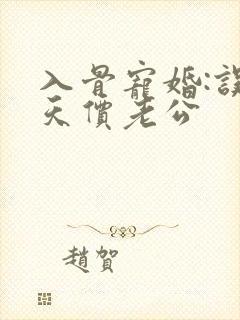 入骨寵婚:誤
天價老公
趙賀